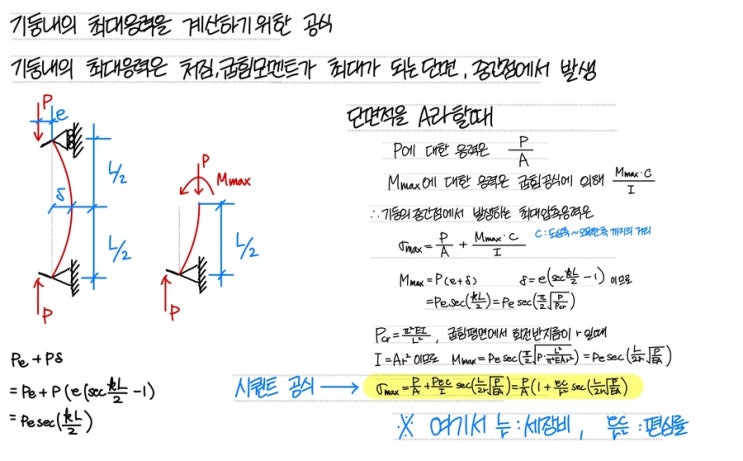 기둥내의 최대응력을 계산하기위한 공식
기둥내의 최대응력은 처짐,굽힘모멘트가 최대가 되는단면, 중간점에서 발생
P
e
L/2
δ
L/2
P
P
Mmax
L/2
P
Pe + Pδ
= Pe + P(e(sec kL/2 - 1)
= Pe sec(kL/2)
단면적을 A라할때
P에 대한 응력은 P/A
Mmax에 대한 응력은 굽힘공식에 의해 Mmax·C/I
∴ 기둥의중간점에서 발생하는 최대압축응력은
σmax = P/A + Mmax·C/I
C: 도심축~오목한측 까지의 거리
Mmax = P(e+δ) δ = e(sec kL/2 - 1) 이므로
= Pe sec(kL/2) = Pe sec(π/2 √(P/Pcr))
Pcr = π²EI/L², 굽힘평면에서 회전반지름이 r일때
I = Ar² 이므로 Mmax = Pe sec(π/2 √(P·L²/π²EAr²)) = Pe sec(L/2r √(P/EA))
시컨트 공식 → σmax = P/A + Pec/I sec(L/2r √(P/EA)) = P/A (1 + ec/r² sec(L/2r √(P/EA))
※ 여기서 L/r : 세장비, ec/r² : 편심률